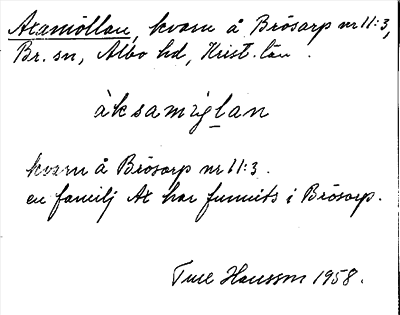 Axamöllan, kvarn å Brösarp nr 11:3,
Br. sn, Albo hd, Krist. län.
àksamiglan
kvarn å Brösarp nr 11:3.
en familj Ax har funnits i Brösarp.
Ture Hansson 1958.